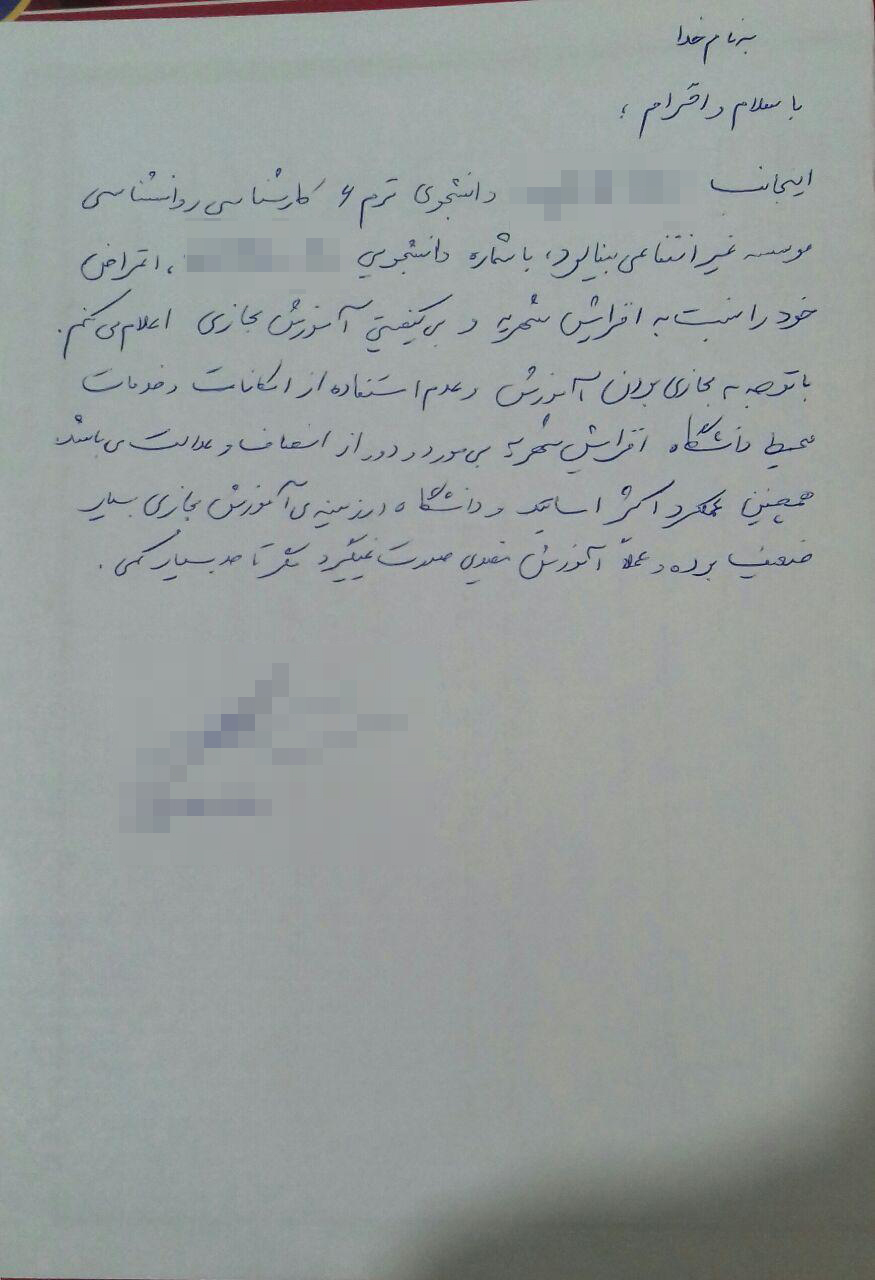 به نام خدا
با سلام و احترام ؛
اینجانب دانشجوی ترم ۶ کارشناسی روانشناسی
موسسه غیر انتفاعی بینالود، با شماره دانشجویی ، اعتراض
خود را نسبت به افزایش شهریه و بی کیفیتی آموزش مجازی اعلام می کنم.
با توجه به مجازی بودن آموزش و عدم استفاده از امکانات و خدمات
محیط دانشگاه افزایش شهریه بی مورد و دور از انصاف و عدالت می باشد.
همچنین عملکرد اکثر اساتید و دانشگاه در زمینه ی آموزش مجازی بسیار
ضعیف بوده و عملاً آموزش مفیدی صورت نمیگیرد مگر تا حد بسیار کمی .